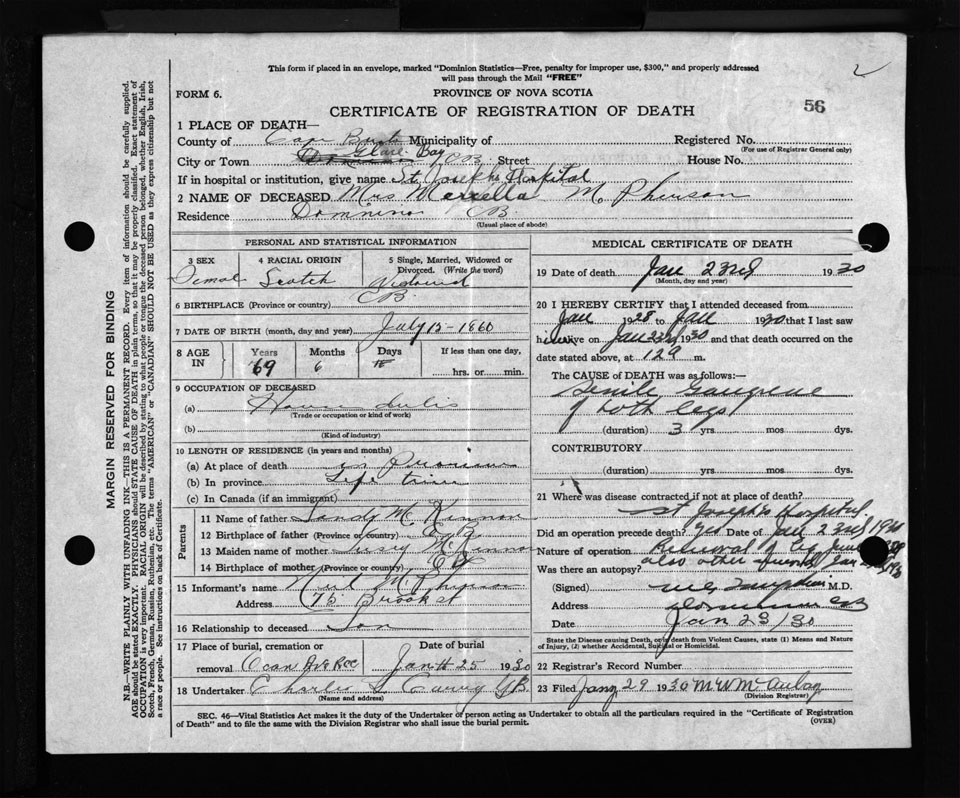 This form if placed in an envelope, marked "Dominion Statistics—Free, penalty for improper use, $300," and properly addressed
will pass through the Mail "FREE"
2
FORM 6.
PROVINCE OF NOVA SCOTIA
CERTIFICATE OF REGISTRATION OF DEATH
56
1 PLACE OF DEATH—
County of Cape Breton Municipality of Registered No.
(For use of Registrar General only)
City or Town Glace Bay CB Street House No.
If in hospital or institution, give name St Josephs Hospital
2 NAME OF DECEASED Mrs McPherson
Residence CB
(Usual place of abode)
PERSONAL AND STATISTICAL INFORMATION
3 SEX 4 RACIAL ORIGIN 5 Single, Married, Widowed or Divorced. (Write the word)
Female Scotch Widowed
6 BIRTHPLACE (Province or country) CB
7 DATE OF BIRTH (month, day and year) July 12-1860
8 AGE IN Years Months Days If less than one day,
69 6 hrs. or min.
9 OCCUPATION OF DECEASED
(a)
(Trade or occupation or kind of work)
(b)
(Kind of industry)
10 LENGTH OF RESIDENCE (in years and months)
(a) At place of death
(b) In province Life time
(c) In Canada (if an immigrant)
Parents
11 Name of father Sandy McKinnon
12 Birthplace of father (Province or country) CB
13 Maiden name of mother McKinnon
14 Birthplace of mother (Province or country) CB
15 Informant's name Neil McPherson
Address 75 Brook St
16 Relationship to deceased Son
17 Place of burial, cremation or removal Date of burial
Jan 25 1930
18 Undertaker GB
(Name and address)
MEDICAL CERTIFICATE OF DEATH
19 Date of death Jan 23rd 1930
(Month, day and year)
20 I HEREBY CERTIFY that I attended deceased from
Jan 1928 to Jan 1930 that I last saw
h alive on Jan 23rd 1930 and that death occurred on the
date stated above, at m.
The CAUSE of DEATH was as follows:—
Senile Gangrene
of both legs
(duration) 3 yrs mos dys.
CONTRIBUTORY
(duration) yrs mos dys.
21 Where was disease contracted if not at place of death?
St Josephs Hospital
Did an operation precede death? Yes Date of Jan 23rd
Nature of operation Removal of leg
also other
Was there an autopsy?
(Signed) M.D.
Address Dominion CB
Date Jan 23/30
State the Disease causing Death, or in death from Violent Causes, state (1) Means and Nature
of Injury, (2) whether Accidental, Suicidal or Homicidal.
22 Registrar's Record Number
23 Filed Jany 29 1930 McAulay
(Division Registrar)
SEC. 46—Vital Statistics Act makes it the duty of the Undertaker or person acting as Undertaker to obtain all the particulars required in the "Certificate of Registration
of Death" and to file the same with the Division Registrar who shall issue the burial permit.
(OVER)
MARGIN RESERVED FOR BINDING
N.B.—WRITE PLAINLY WITH UNFADING INK—THIS IS A PERMANENT RECORD. Every item of information should be carefully supplied.
AGE should be stated EXACTLY. PHYSICIANS should STATE CAUSE OF DEATH in plain terms, so that it may be properly classified. Exact statement of
OCCUPATION is very important. RACIAL ORIGIN will be described by stating to what people or tongue the deceased person belonged, whether English, Irish,
Scotch, French, German, Russian, Ruthenian, etc. The terms "AMERICAN" or "CANADIAN" SHOULD NOT BE USED as they express citizenship but not
a race or people. See instructions on back of Certificate.